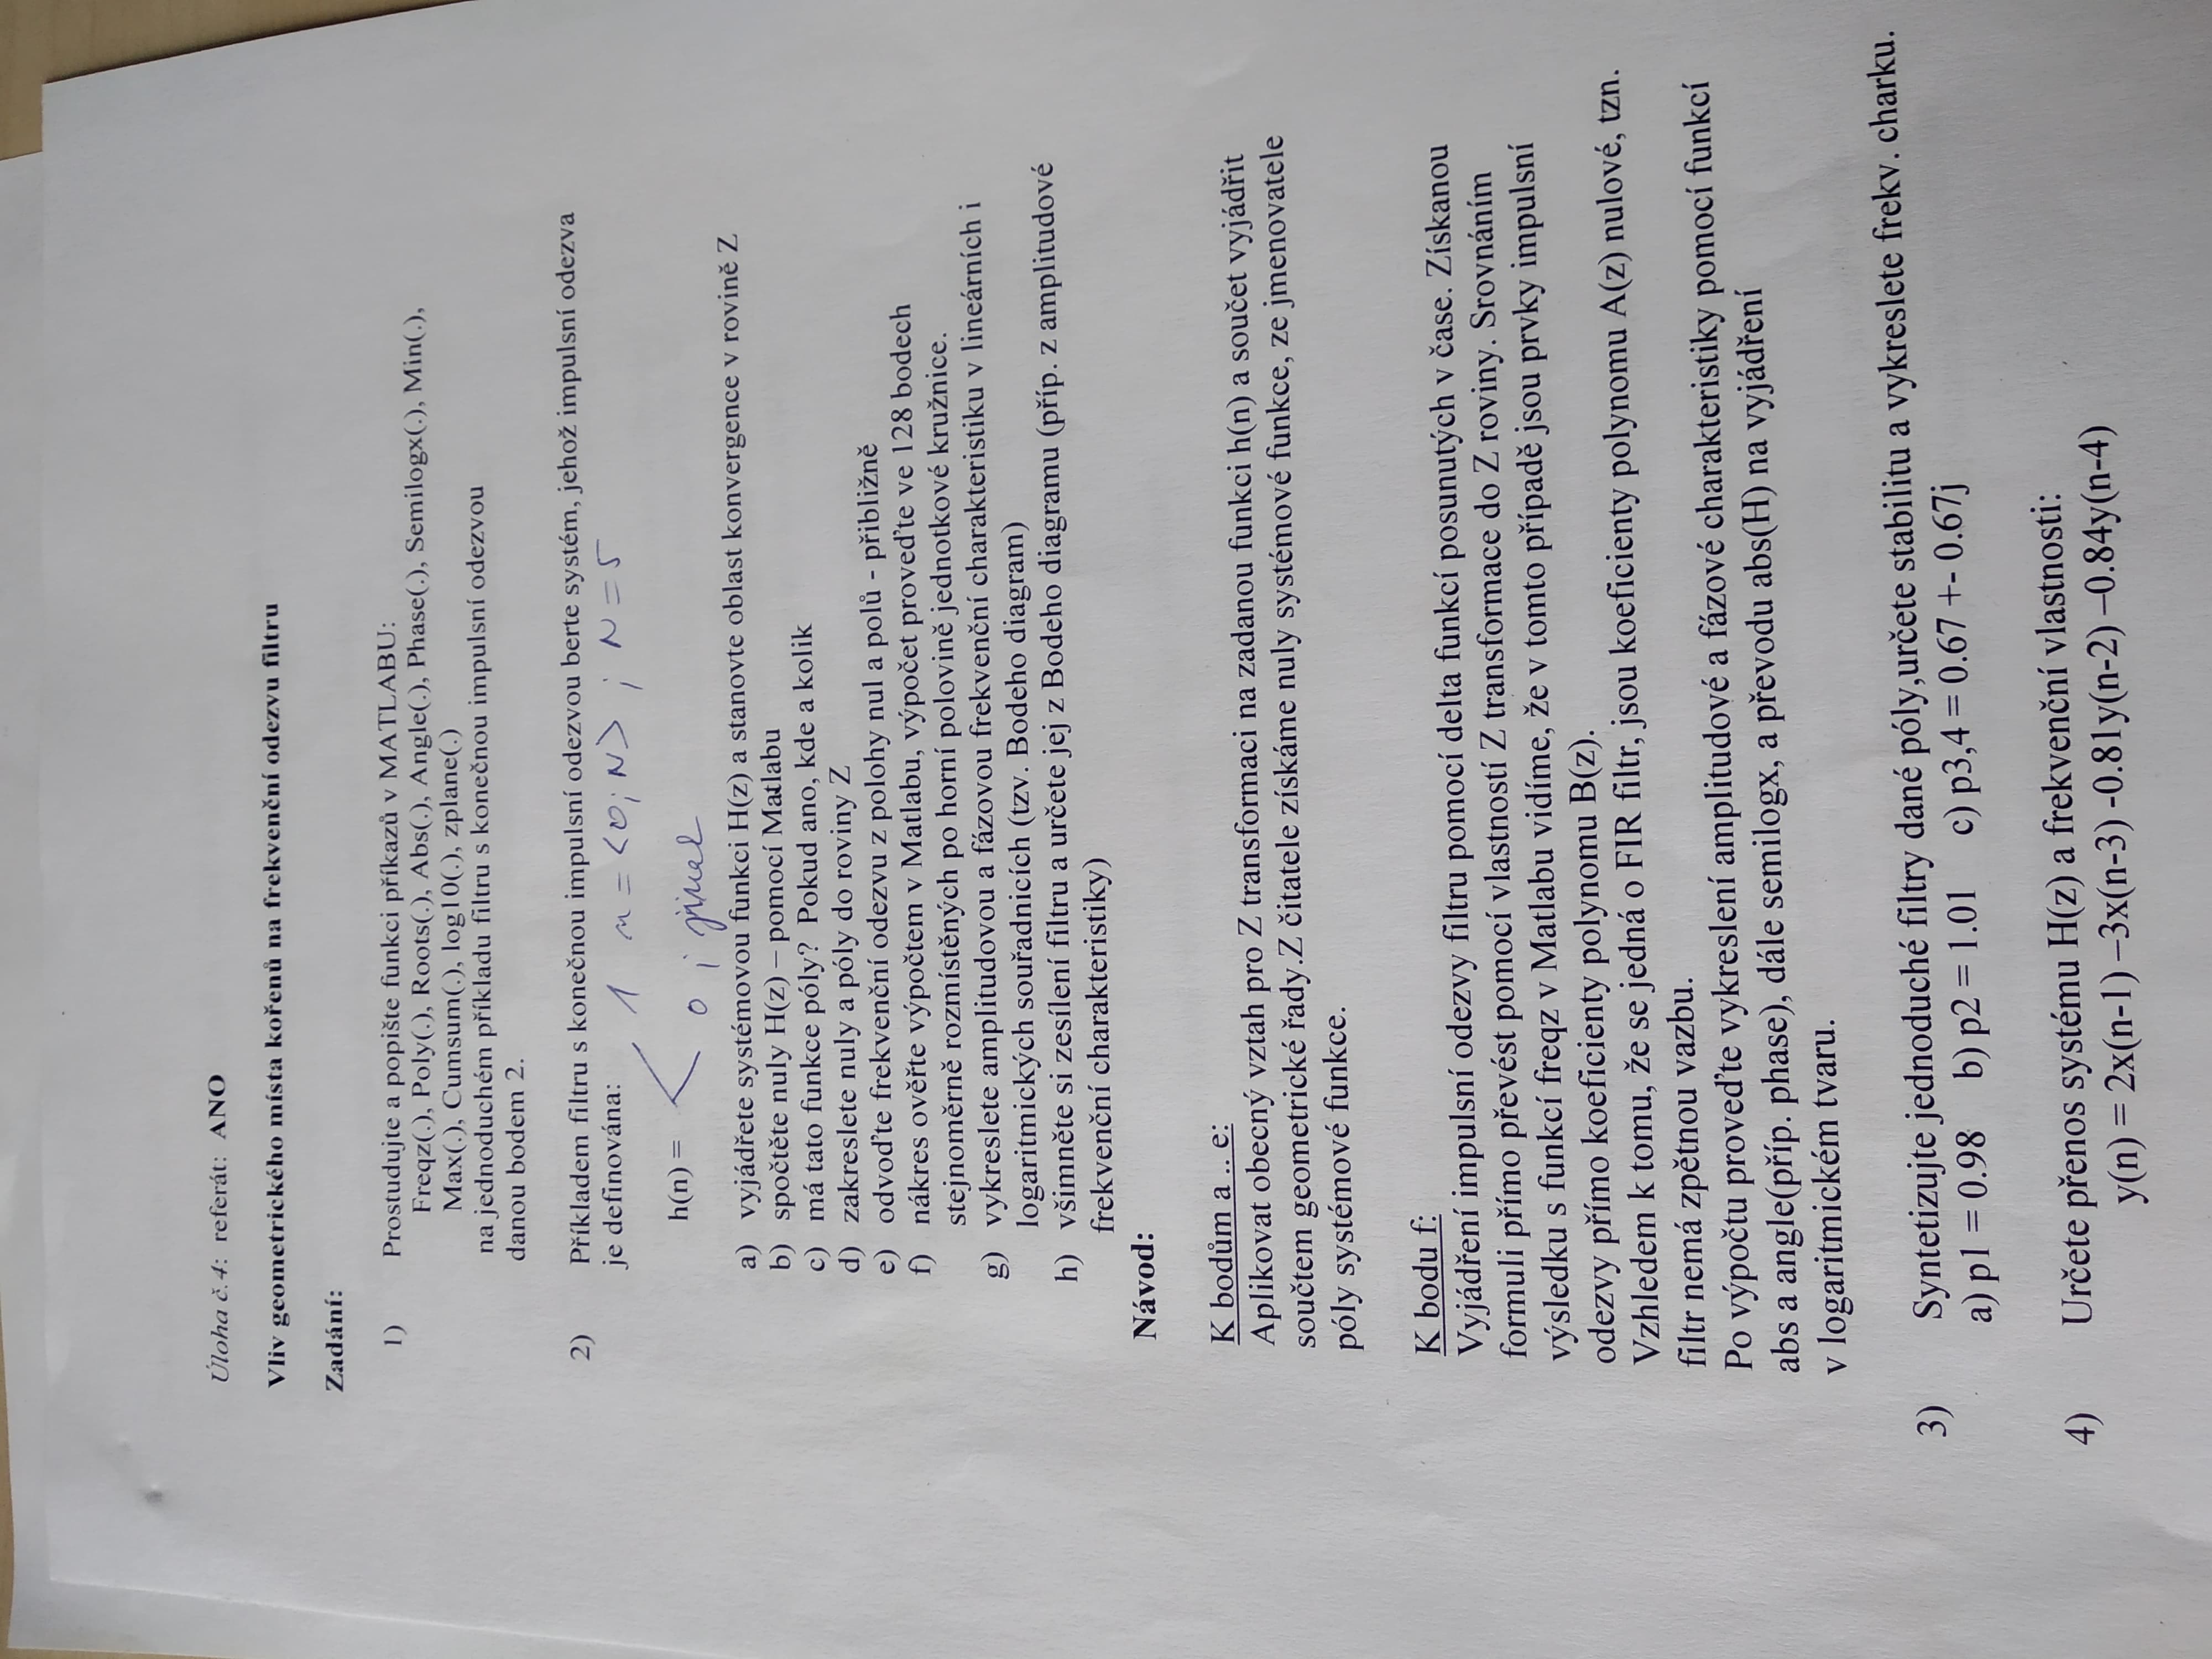 Úloha č.4: referát: ANO
Vliv geometrického místa kořenů na frekvenční odezvu filtru
Zadání:
1) Prostudujte a popište funkci příkazů v MATLABU:
Freqz(.), Poly(.), Roots(.), Abs(.), Angle(.), Phase(.), Semilogx(.), Min(.),
Max(.), Cumsum(.), log10(.), zplane(.)
na jednoduchém příkladu filtru s konečnou impulsní odezvou
danou bodem 2.
2) Příkladem filtru s konečnou impulsní odezvou berte systém, jehož impulsní odezva
je definována:
1 n = <0; N> ; N = 5
h(n) =
0 ; jinak
a) vyjádřete systémovou funkci H(z) a stanovte oblast konvergence v rovině Z
b) spočtěte nuly H(z) – pomocí Matlabu
c) má tato funkce póly? Pokud ano, kde a kolik
d) zakreslete nuly a póly do roviny Z
e) odvoďte frekvenční odezvu z polohy nul a polů - přibližně
f) nákres ověřte výpočtem v Matlabu, výpočet proveďte ve 128 bodech
stejnoměrně rozmístěných po horní polovině jednotkové kružnice.
g) vykreslete amplitudovou a fázovou frekvenční charakteristiku v lineárních i
logaritmických souřadnicích (tzv. Bodeho diagram)
h) všimněte si zesílení filtru a určete jej z Bodeho diagramu (příp. z amplitudové
frekvenční charakteristiky)
Návod:
K bodům a .. e:
Aplikovat obecný vztah pro Z transformaci na zadanou funkci h(n) a součet vyjádřit
součtem geometrické řady.Z čitatele získáme nuly systémové funkce, ze jmenovatele
póly systémové funkce.
K bodu f:
Vyjádření impulsní odezvy filtru pomocí delta funkcí posunutých v čase. Získanou
formuli přímo převést pomocí vlastností Z transformace do Z roviny. Srovnáním
výsledku s funkcí freqz v Matlabu vidíme, že v tomto případě jsou prvky impulsní
odezvy přímo koeficienty polynomu B(z).
Vzhledem k tomu, že se jedná o FIR filtr, jsou koeficienty polynomu A(z) nulové, tzn.
filtr nemá zpětnou vazbu.
Po výpočtu proveďte vykreslení amplitudové a fázové charakteristiky pomocí funkcí
abs a angle(příp. phase), dále semilogx, a převodu abs(H) na vyjádření
v logaritmickém tvaru.
3) Syntetizujte jednoduché filtry dané póly,určete stabilitu a vykreslete frekv. charku.
a) p1 = 0.98 b) p2 = 1.01 c) p3,4 = 0.67 +- 0.67j
4) Určete přenos systému H(z) a frekvenční vlastnosti:
y(n) = 2x(n-1) –3x(n-3) -0.81y(n-2) –0.84y(n-4)